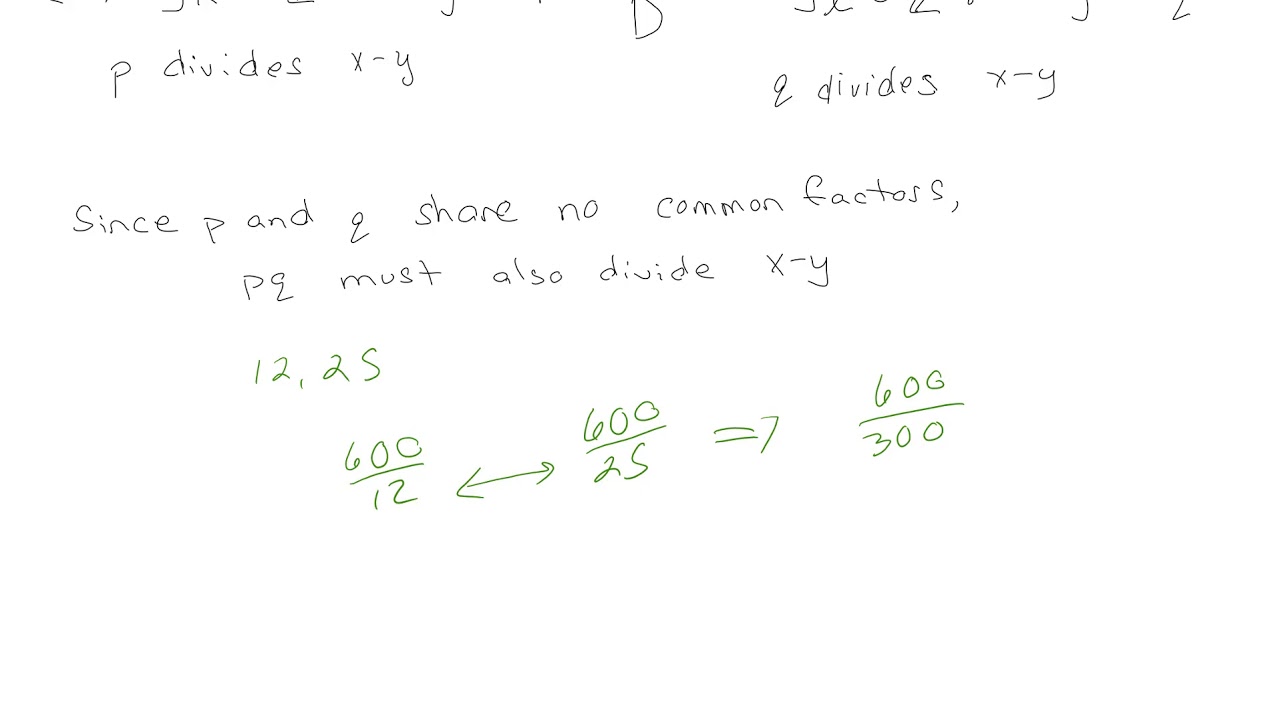 p divides x-y
q divides x-y
Since p and q share no common factors,
pq must also divide x-y
12, 25
600/12 ⟷ 600/25 => 600/300